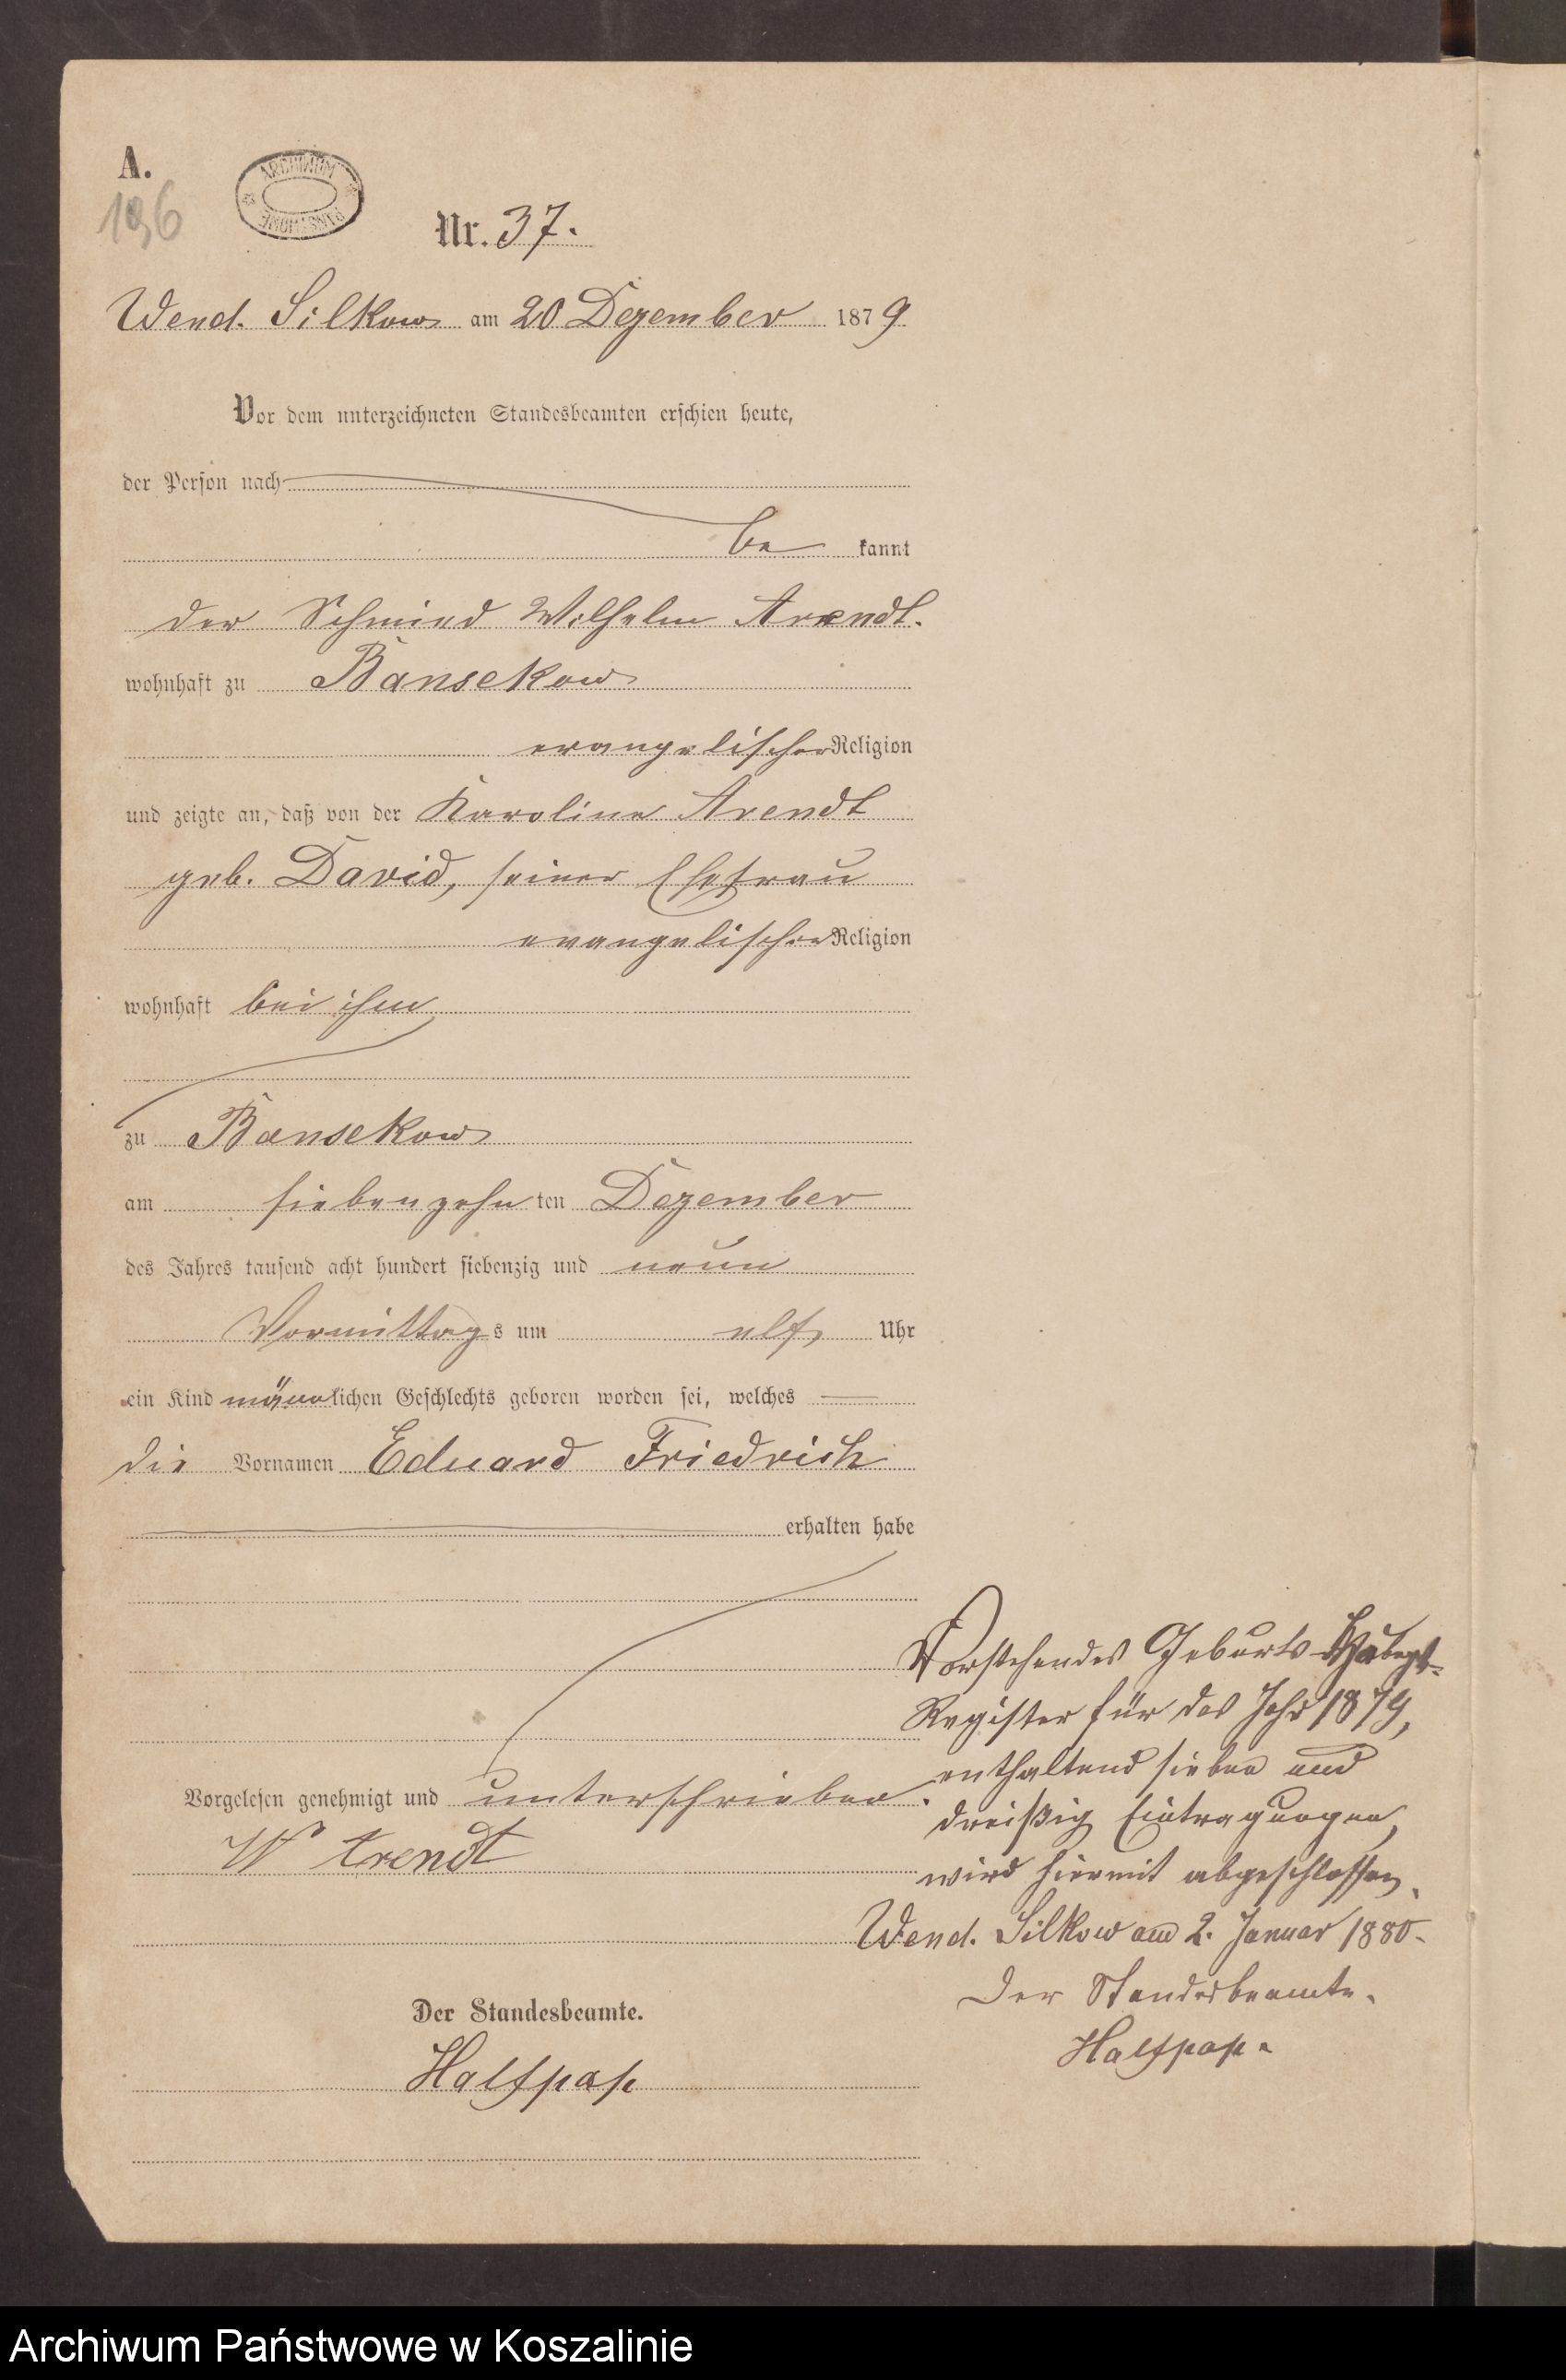 A.
196
ARCHIWUM PAŃSTWOWE
Nr. 37.
Wend. Silkow am 20 Dezember 1879.
Vor dem unterzeichneten Standesbeamten erschien heute,
der Person nach
be kannt
der Schmied Wilhelm Arendt.
wohnhaft zu Bansekow
evangelischer Religion
und zeigte an, daß von der Karoline Arendt
geb. David, seiner Ehefrau
evangelischer Religion
wohnhaft bei ihm
zu Bansekow
am siebenzehn ten Dezember
des Jahres tausend acht hundert siebenzig und neun
Vormittag s um elf Uhr
ein Kind männlichen Geschlechts geboren worden sei, welches
die Vornamen Eduard Friedrich
erhalten habe
Vorgelesen genehmigt und unterschrieben.
W Arendt
Der Standesbeamte.
Halfpap
Vorstehendes Geburts-Haupt-
Register für das Jahr 1879,
enthaltend sieben und
dreißig Eintragungen,
wird hiermit abgeschlossen.
Wend. Silkow am 2. Januar 1880.
Der Standesbeamte.
Halfpap.
Archiwum Państwowe w Koszalinie